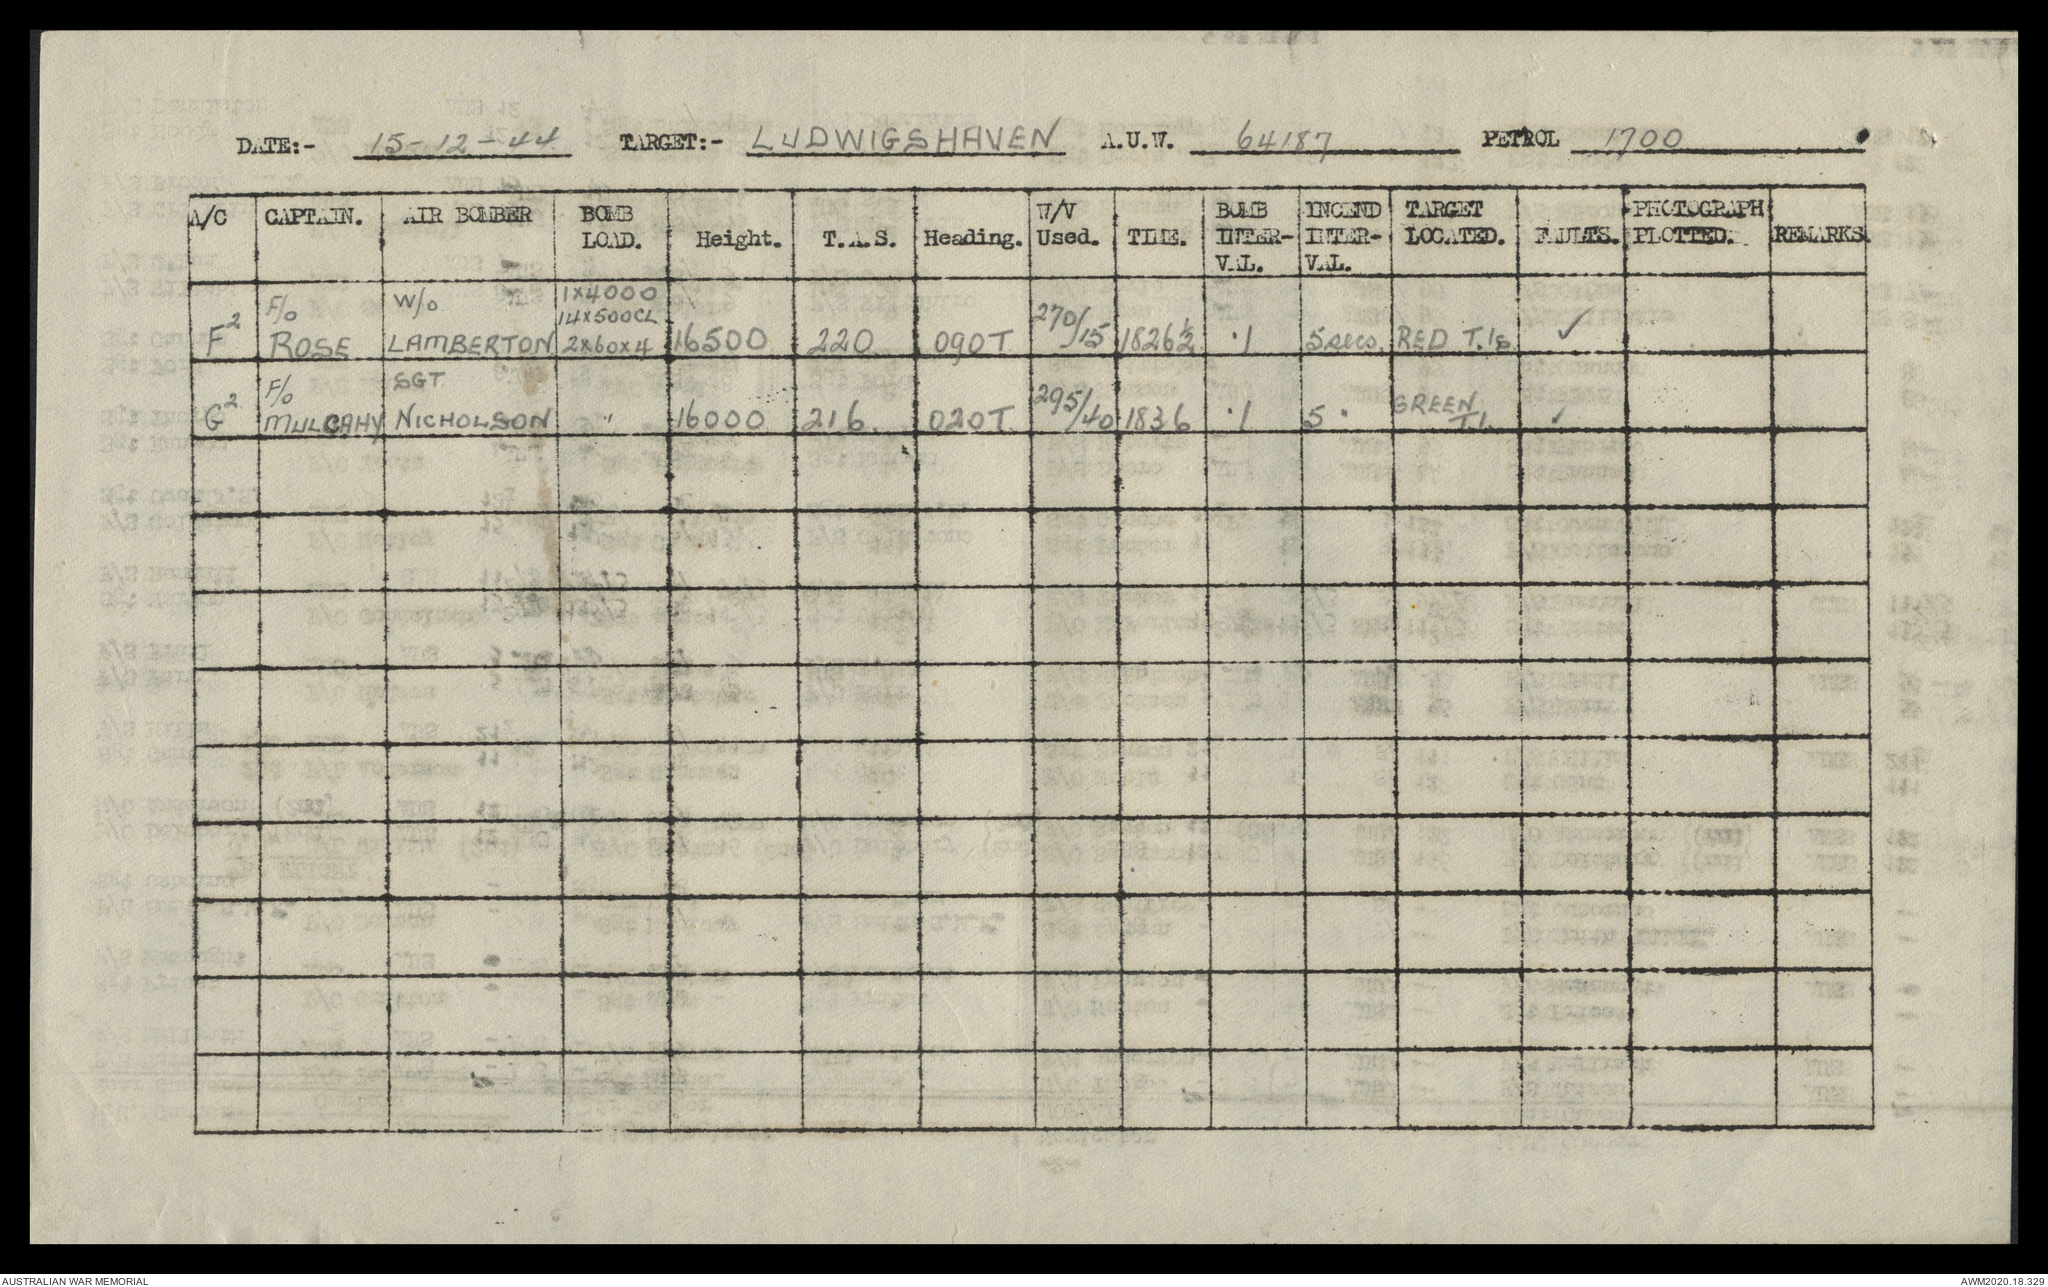 DATE:- 15-12-44 TARGET:- LUDWIGSHAVEN A.U.W. 64187 PETROL 1700
A/C CAPTAIN. AIR BOMBER BOMB LOAD. Height. T.A.S. Heading. W/V Used. TIME. BOMB INTER-VAL. INCEND INTER-VAL. TARGET LOCATED. FAULTS. PHOTOGRAPH PLOTTED. REMARKS.
F2 F/o ROSE W/o LAMBERTON 1x4000 14x500CL 2x60x4 16500 220 090T 270/15 1826½ .1 5 secs. RED T.Is ✓
G2 F/o MULCAHY SGT NICHOLSON " 16000 216. 020T 295/40 1836 .1 5 " GREEN T.I. ✓
AUSTRALIAN WAR MEMORIAL
AWM2020.18.329